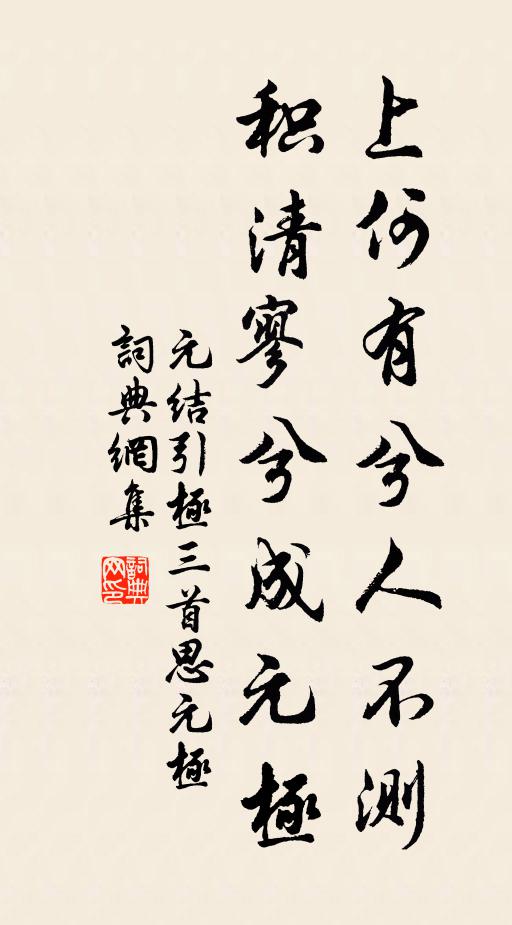 上何有兮人不測
积清寥兮成元極
元结引極三首思元極
詞典網集
詞典网印